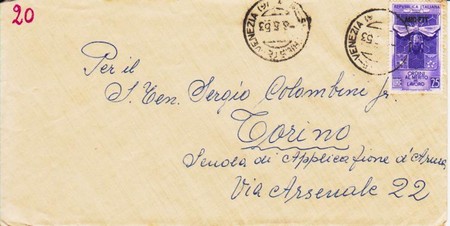 20
VENEZIA
5.53
VENEZIA
53
REPUBBLICA ITALIANA
AMG-FTT
ORDINE
AL MERITO
DEL
LAVORO
Per il
S. Ten. Sergio Colombini Jr.
Torino
Scuola di Applicazione d'Arma
Via Arsenale 22